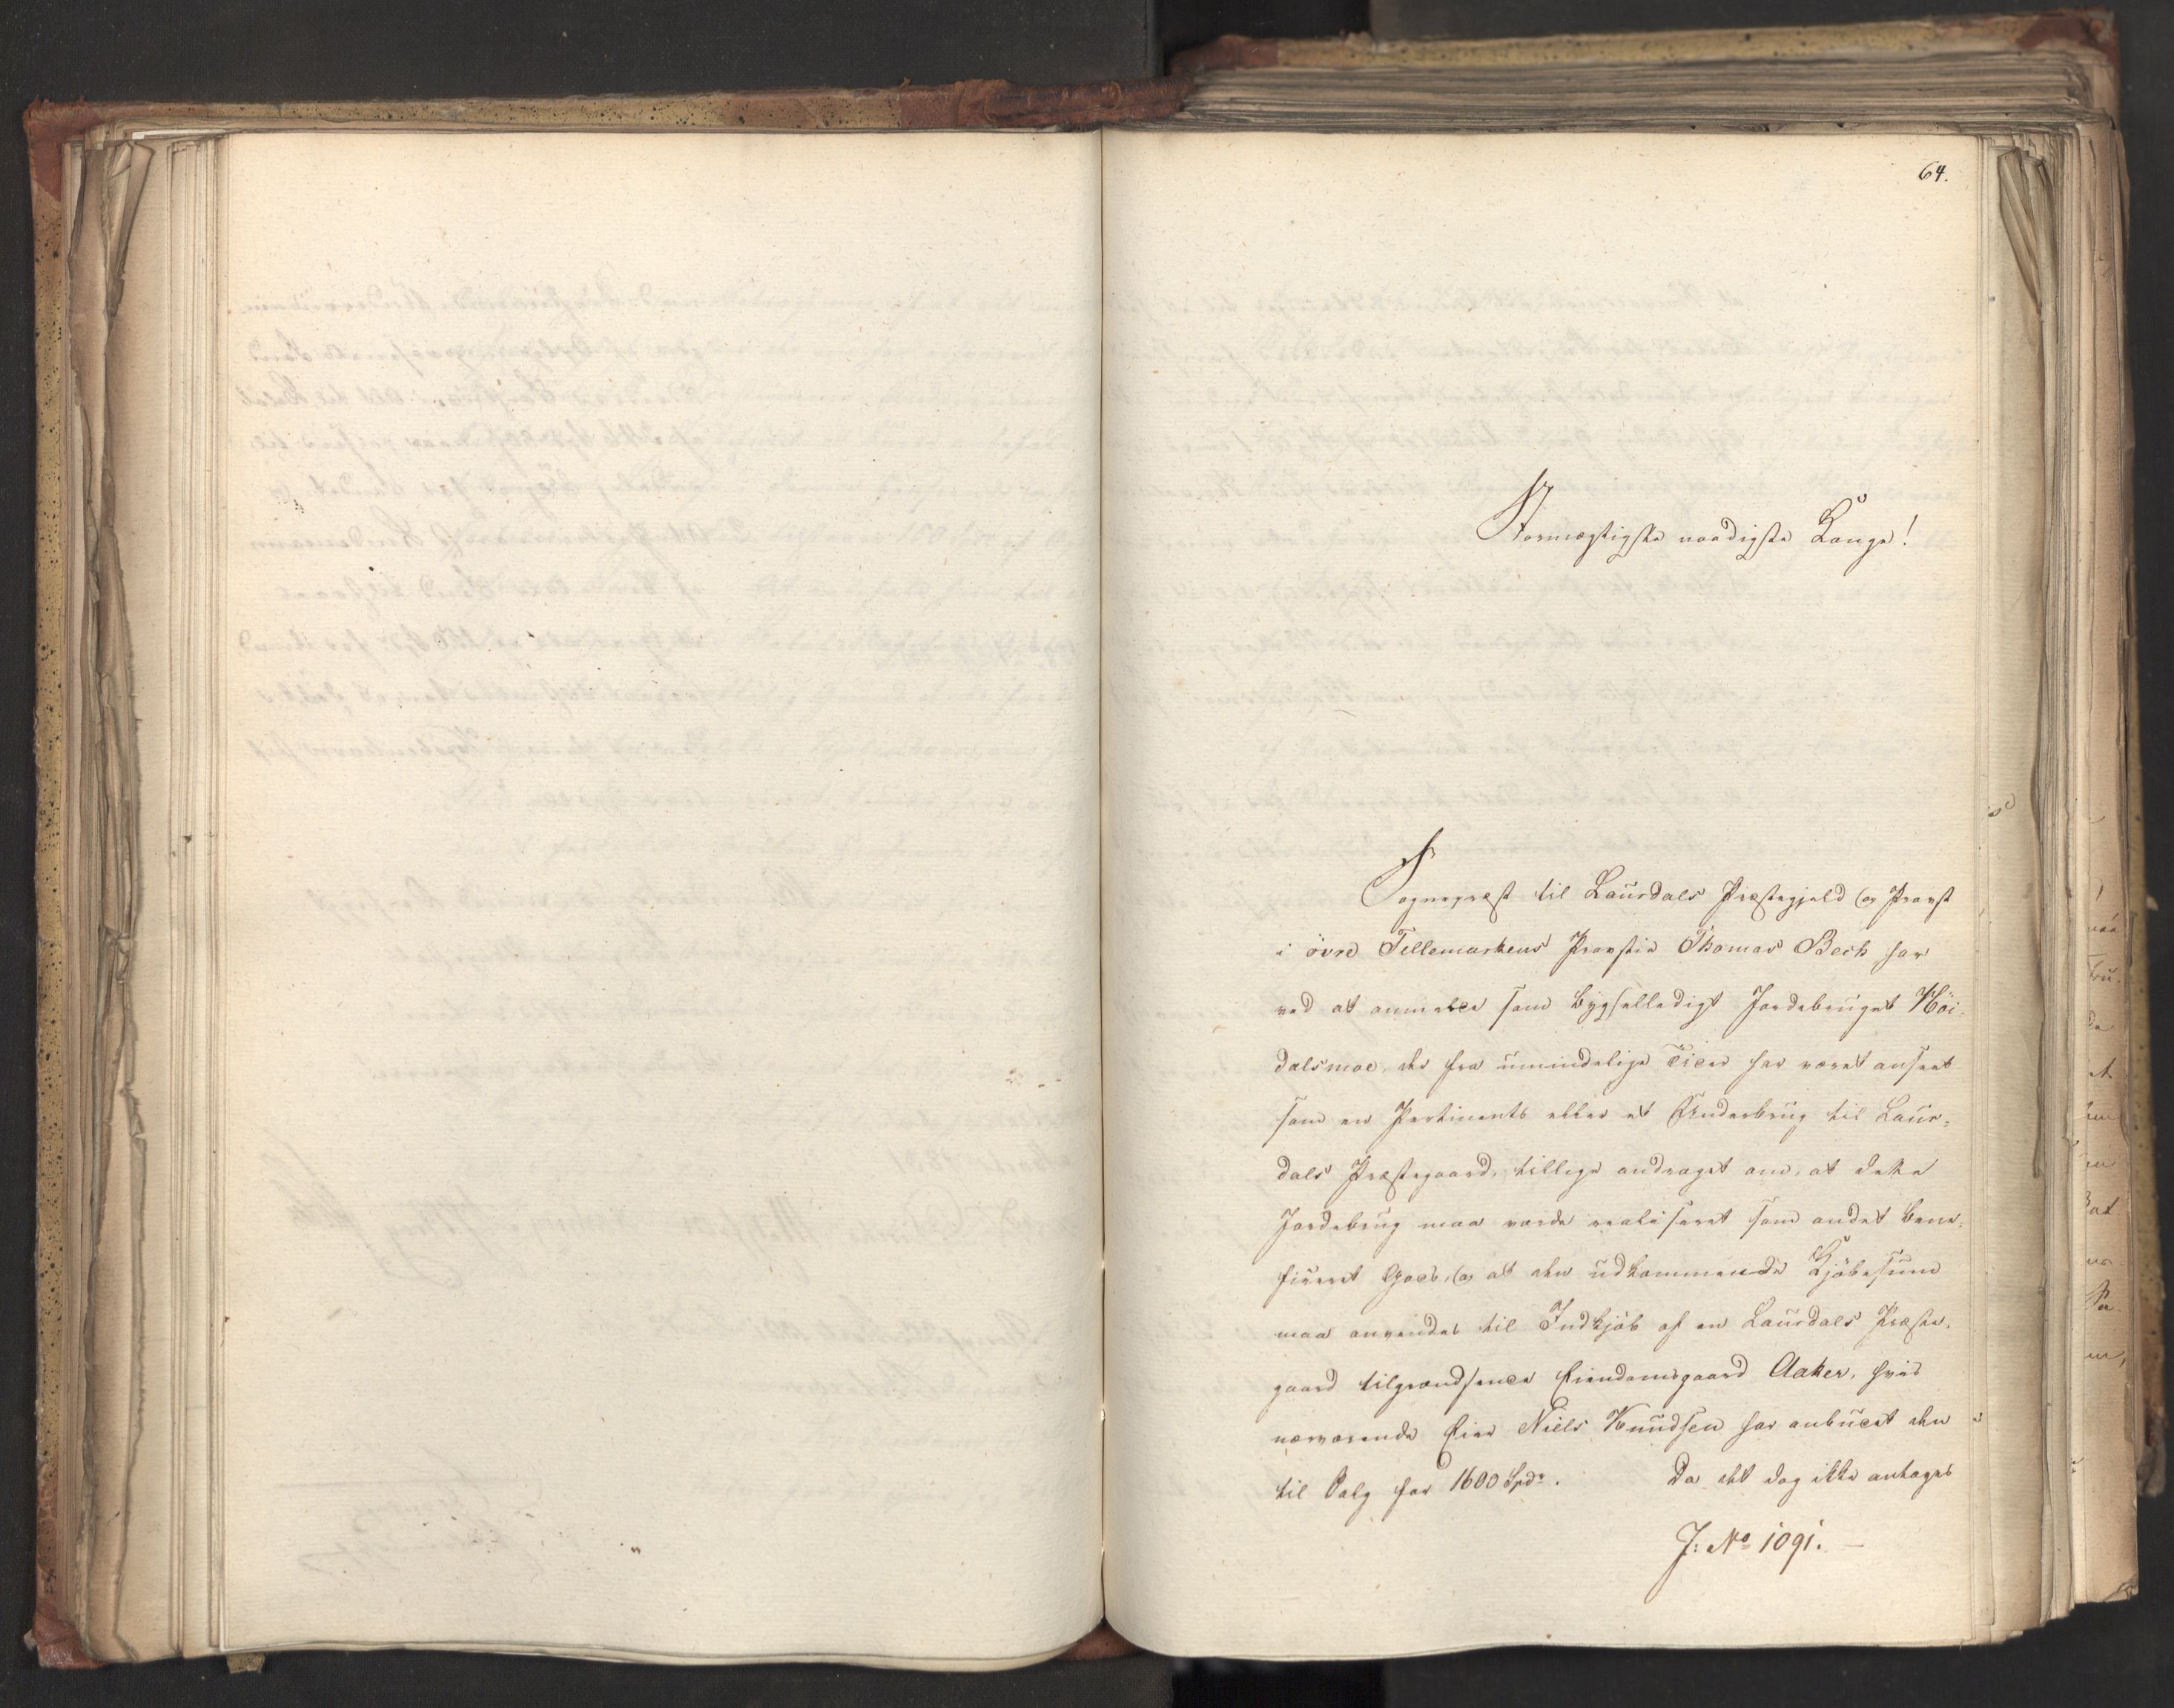 64.
Stormægtigste naadigste Konge!
Sognepræst til Laurdals Præstegjeld og Provst
i övre Tellemarkens Provstie Thomas Bech har
ved at anmelde som bygselledigt Jordebruget Höi-
dalsmoe, der fra umindelige Tider har været anseet
som en Pertinents eller et Underbrug til Laur-
dals Præstegaard, tillige andraget om, at dette
Jordebrug maa vorde realiseret som andet bene-
ficeret Gods, og at den udkommende Kjöbesum
maa anvendes til Indkjöb af en Laurdals Præste-
gaard tilgrændsende Eiendomsgaard Aaker, hvis
nærværende Eier Niels Knudsen har anbudet den
til Salg for 1600 Spdr. Da det dog ikke antages
J: No 1091. —